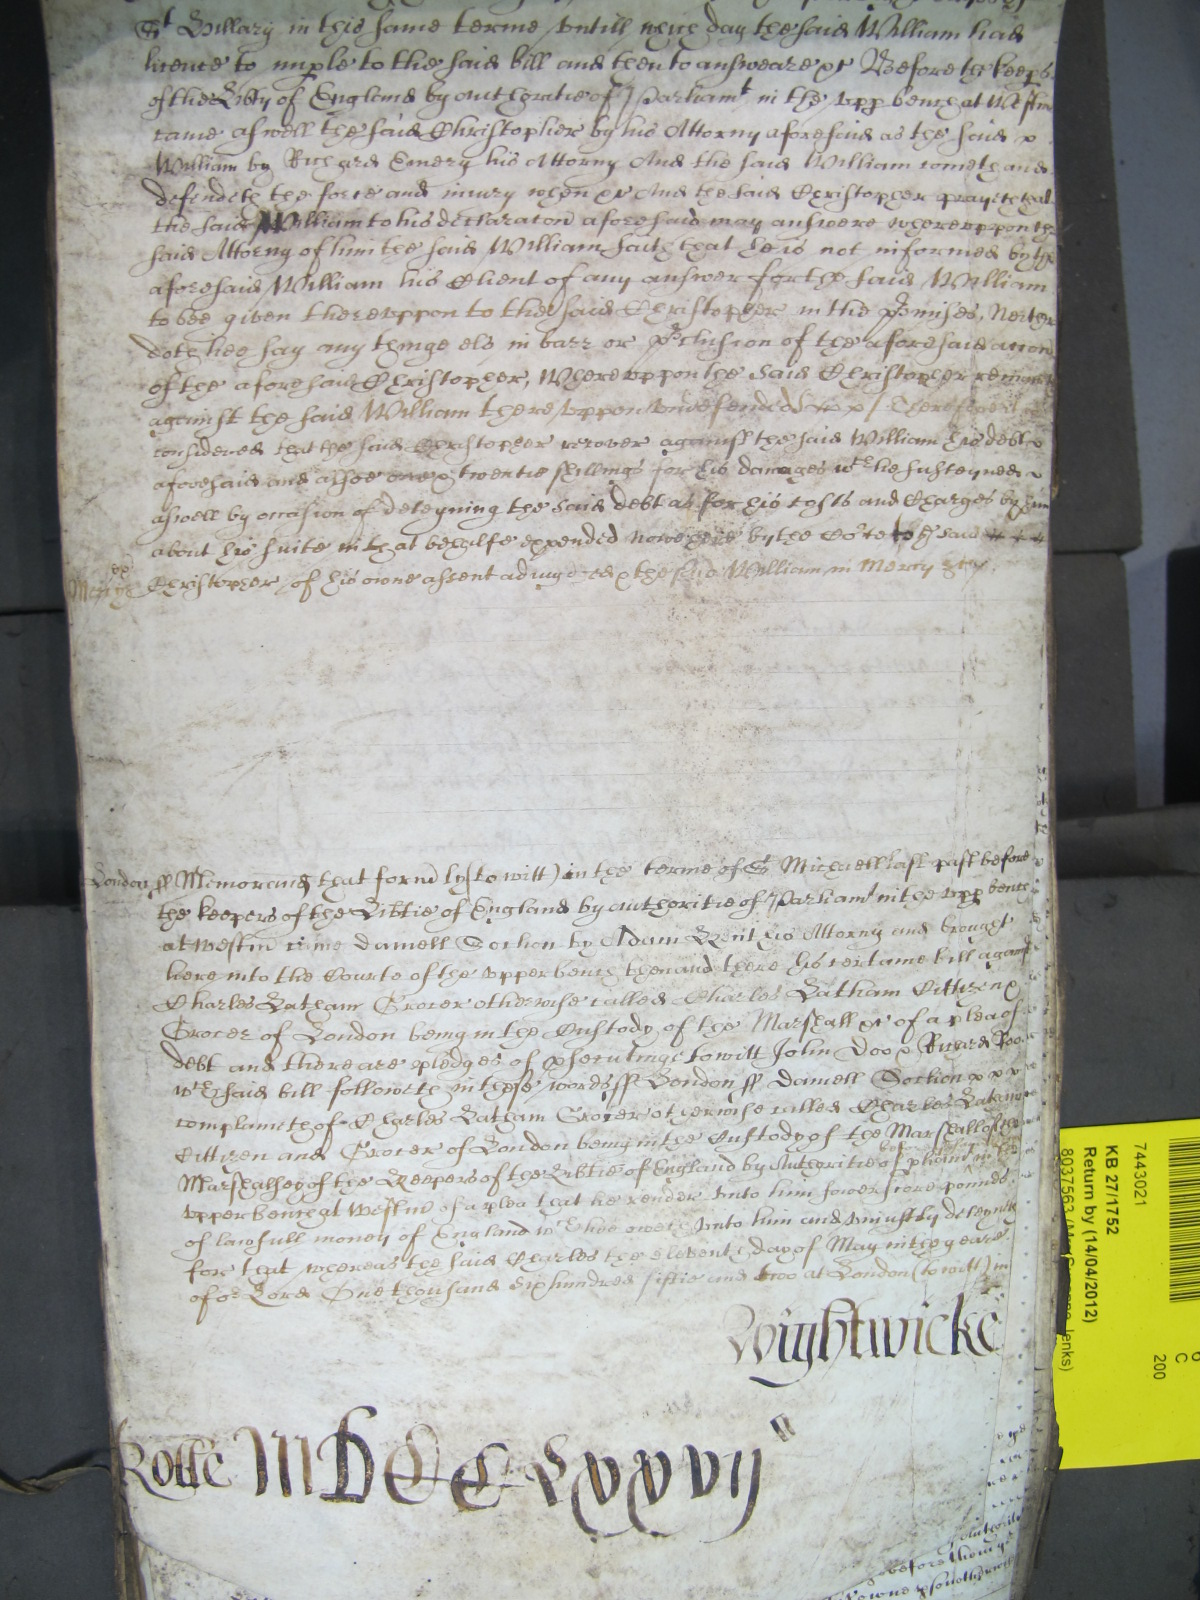 St Hillary in this same terme untill which day the said William had
licence to imple to the said bill and then to answeare &c Before the keeps
of the Libty of England by authoritie of Parliamt in the upp bench at Westm
came aswell the said Christopher by his Attorny aforesaid as the said
William by Richard Emery his Attorny And the said William cometh and
defendeth the force and iniury when &c And the said Christopher prayeth that
the said William to his declaracon aforesaid may answere whereuppon the
said Attorny of him the said William saith that he is not informed by the
aforesaid William his Client of any answer for the said William
to bee given thereuppon to the said Christopher in the pmises, Neither
doth hee say any thinge els in barr or pclusion of the aforesaid accon
of the aforesaid Christopher, Whereuppon the said Christopher remaineth
against the said William thereuppon undefended &c Therefore
considered that the said Christopher recover against the said William his debt
aforesaid and alsoe twentie shillings for his damages wch he susteyned
aswell by occasion of deteyning the said debt as for his costs and Charges by him
about his suite in that behalfe expended nowe here by the Cote to the said
Christopher of his owne assent adiudged & the said William in Mercy &c
Mercy
London ss Memorand that formly (to witt) in the terme of St Michaell last past before
the keepers of the Libtie of England by authoritie of Parliamt in the upp bench
at Westm came Daniell Sorlion by Adam Bent his Attorny and brought
here into the Courte of the upper bench then and there his certaine bill against
Charles Latham Grocer otherwise called Charles Latham Cittizen &
Grocer of London being in the Custody of the Marshall &c of a plea of
debt and there are pledges of psecutinge to witt John Doo & Richard Roo
wch said bill followeth in these words ss London ss Daniell Sorlion
complaineth of Charles Latham Grocer otherwise called Charles Latham
Cittizen and Grocer of London being in the Custody of the Marshall of the
Marshalsey of the Keepers of the Libtie of England by Authoritie of pliamt in the
upper bench at Westm of a plea that he render unto him fower score pounds
of lawfull money of England wch hee oweth unto him and uniustly deteyneth
for that whereas the said Charles the eleventh day of May in the yeare
of or Lord One thousand six hundred fiftie and two at London (to witt) in
Wightwicke
Rolle MDCCLXXVII
7443021
KB 27/1752
Return by (14/04/2012)
8037563
C
200